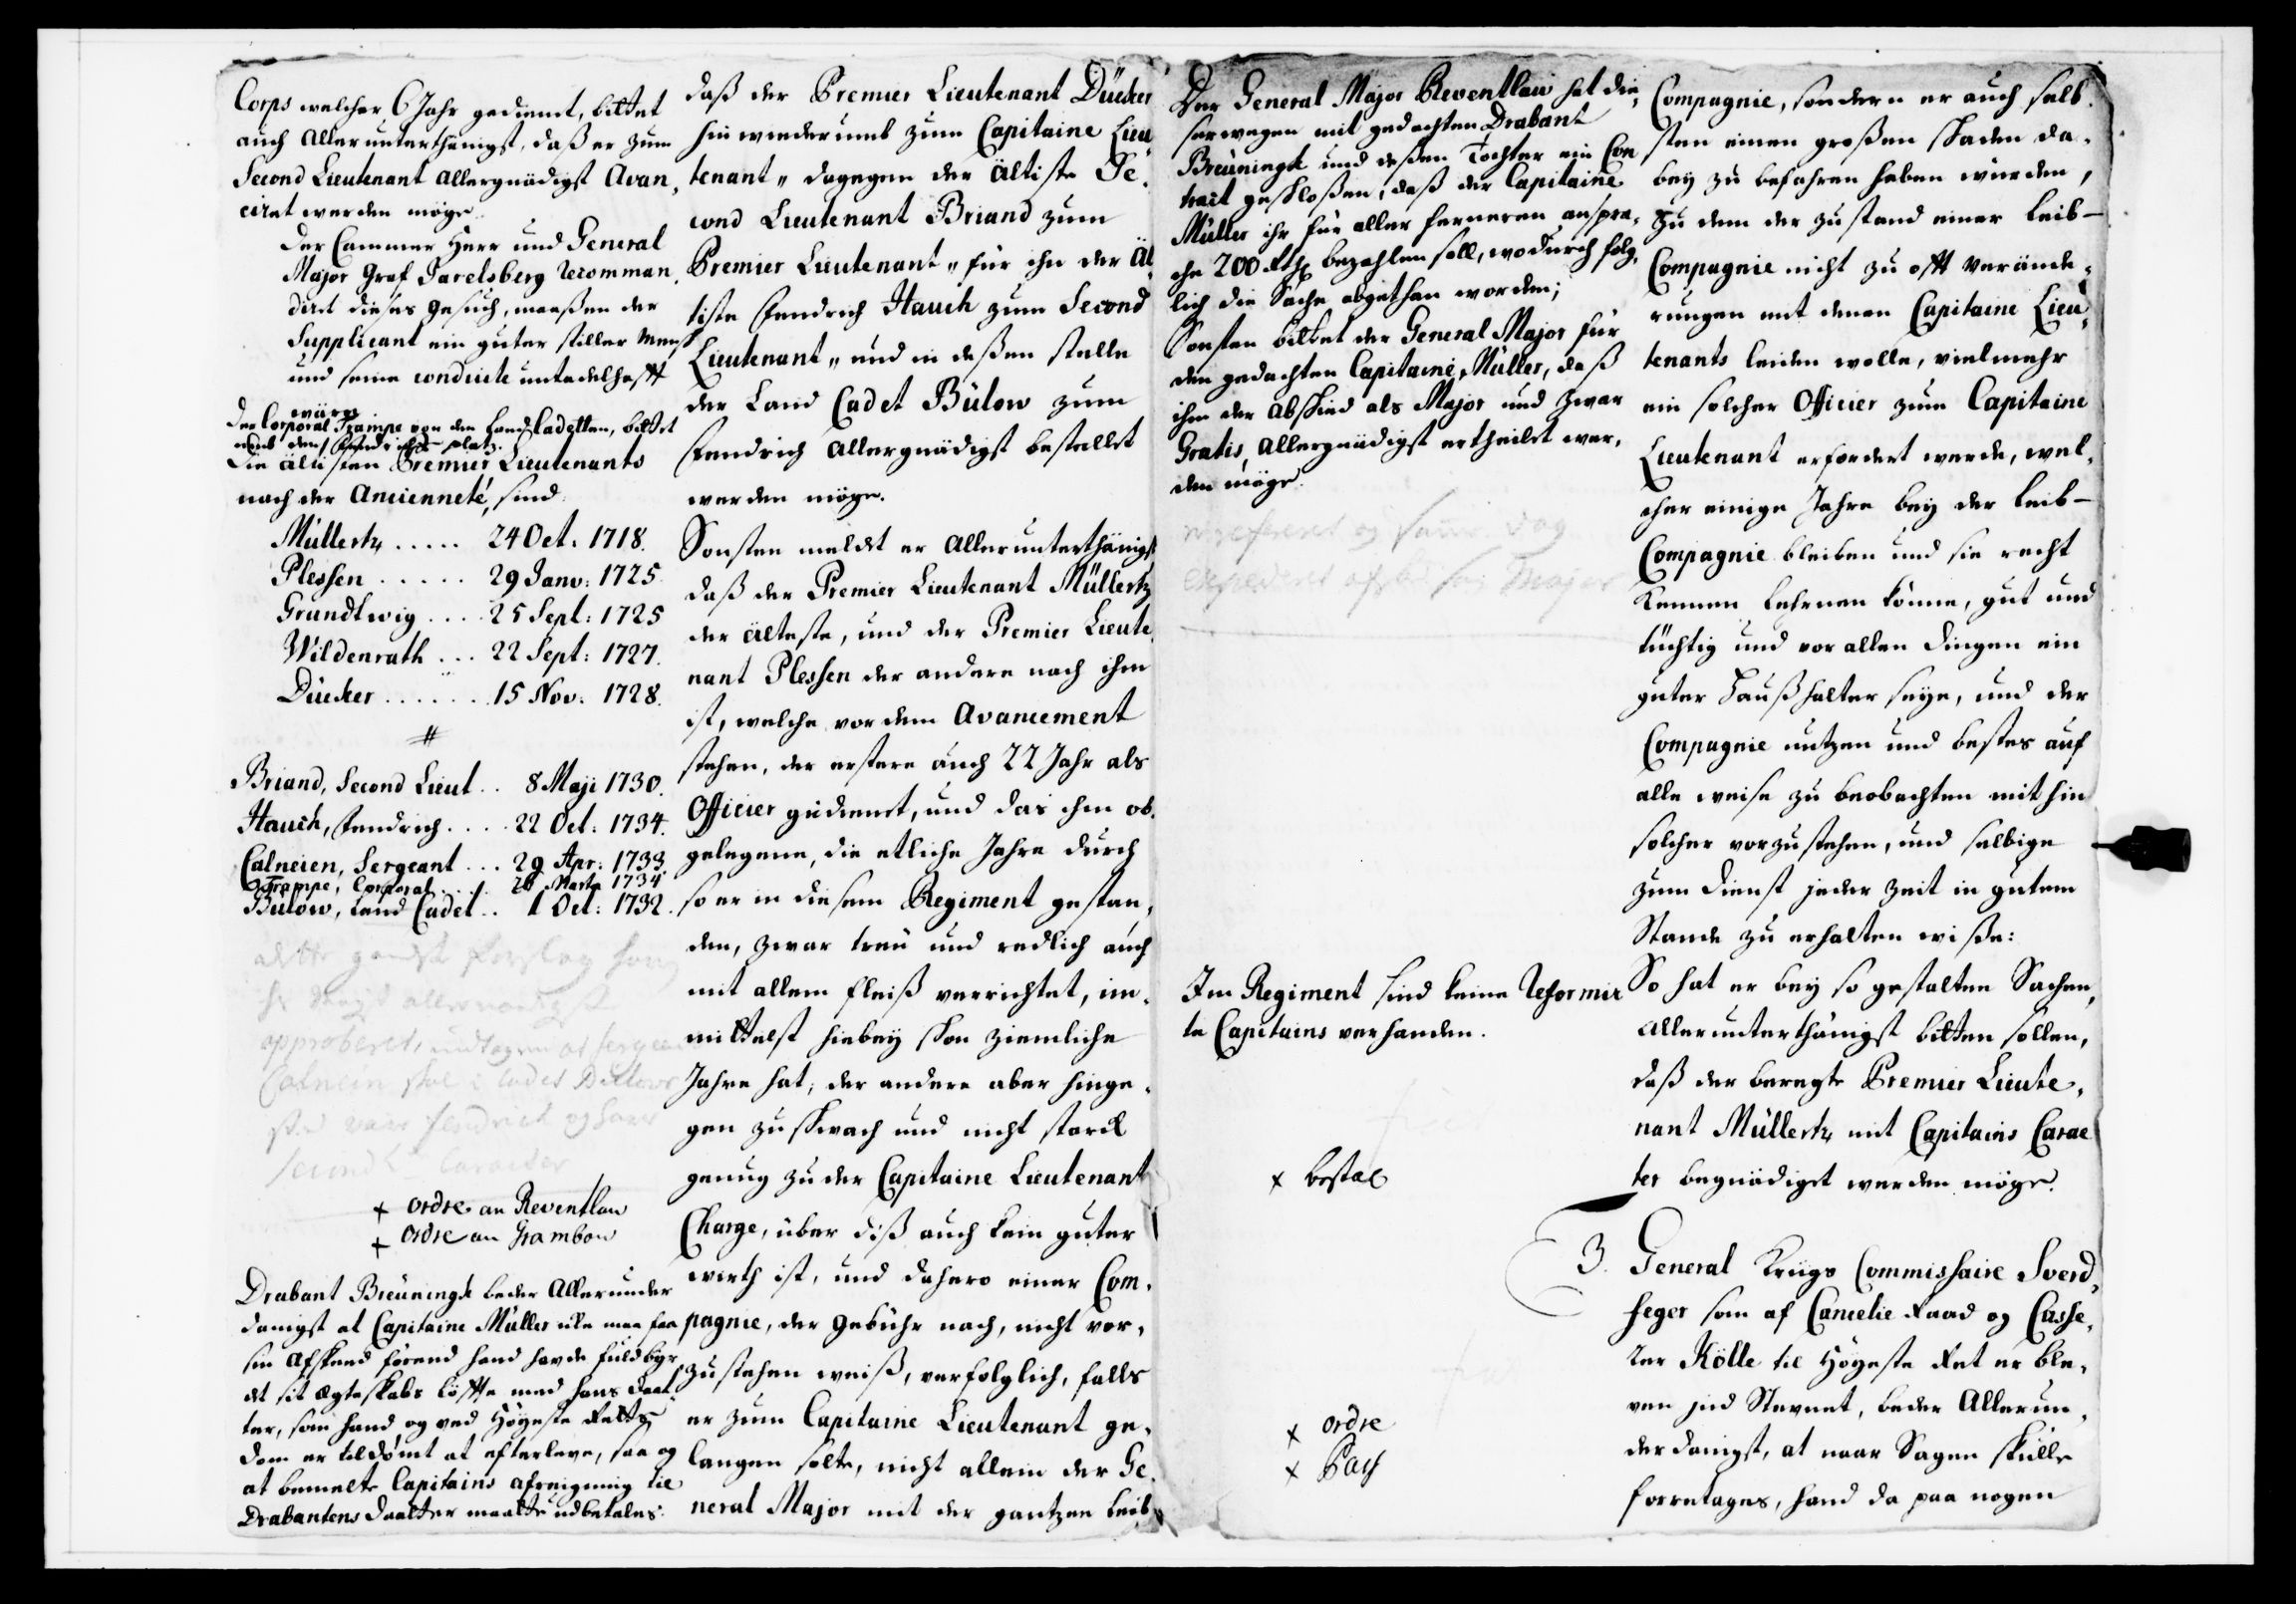 Corps welcher 6 Jahr gedient, bittet
auch Allerunterthänigst, daß er zum
Second Lieutenant Allergnädigst Avan,
ciret werden möge.
Der Cammer Herr und General
Major Graf Harelsberg recomman,
diret dieses gesuch, maaßen der
Supplicant ein guter stiller Mensch
und seine conduite untadelhafft
wäre.
Der Corporal Trampe von den Land Cadetten, bittet
umb den Fendrichs platz.
Die ältisten Premier Lieutenants
nach der Ancienneté, sind
Müllertz ..... 24 Oct. 1718.
Plessen ..... 29 Janv: 1725.
Grundtwig .... 25 Sept: 1725
Wildenrath ... 22 Sept: 1727.
Dücker ...... 15 Nov: 1728.
#
Briand, Second Lieut .. 8 Maji 1730.
Hauch, Fendrich .... 22 Oct: 1734.
Calneien, Sergeant ... 29 Apr: 1733.
Trampe, Corporal .... 26 Marty 1734.
Bülow, Land Cadet .. 1 Oct: 1732.
dette gandske forslag
approberet, undtagen at Sergea
Calnein skal i Cadet Bülows
sted være fendrich og have
Second Caracter
+ Ordre an Reventlau
+ Ordre an Grambow
Drabant Breüningk beder Allerunder
danigst at Capitaine Müller icke maa faa
sin Afskeed førend hand havde fuldbyr,
det sit ægteskabs løffte med hans Daat,
ter, som hand og ved Høyeste Retts
dom er tildømt at efterleve, saa og
at bemelte Capitains afreigning til
Drabantens Daatter maatte udbetales.
daß der Premier Lieutenant Dücker
hinwiederumb zum Capitaine Lieu,
tenant,, dagegen der Ältiste Se,
cond Lieutenant Briand zum
Premier Lieutenant,, für ihn der Äl,
tiste Fendrich Hauch zum Second
Lieutenant,, und in deßen stelle
der Land Cadet Bülow zum
Fendrich Allergnädigst bestellet
werden möge.
Sonsten meldet er Allerunterthänigst
daß der Premier Lieutenant Müllertz
der älteste, und der Premier Lieute,
nant Plessen der andere nach ihm
ist, welche vor dem Avancement
stehen, der erstere auch 22 Jahr als
Officier gedienet, und das ihm ob,
gelegene, die etliche Jahre durch
so er in diesem Regiment gestan,
den, zwar treu und redlich auch
mit allem fleiß verrichtet, im,
mittelst hiebey schon ziemliche
Jahre hat; der andere aber hinge,
gen zu schwach und nicht starck
genug zu der Capitaine Lieutenant
Charge, über diß auch kein guter
wirth ist, und dahero einer Com,
pagnie, der gebühr nach, nicht vor,
zustehen weiß, verfolglich, falls
er zum Capitaine Lieutenant ge,
langen solte, nicht allein der Ge,
neral Major mit der gantzen Leib
Der General Major Reventlau hat die,
serwegen mit gedachten Drabant
Breüningk und deßen Tochter ein Con
tract geschloßen, daß der Capitaine
Müller ihr für aller ferneren anspra,
che 200 Rthr bezahlen soll, wodurch folg,
lich die Sache abgethan worden;
Sonsten bittet der General Major für
den gedachten Capitaine, Müller, daß
ihm der Abschied als Major und zwar
Gratis, Allergnädigst ertheilet wer,
den möge.
expederet afskeed som Major
Im Regiment sind keine Reformir
te Capitains verhanden.
+ bestal
+ ordre
+ Pass
Compagnie, sondern er auch selb,
sten einen großen schaden da,
bey zu befahren haben würden,
Zu dem der zustand einer Leib-
Compagnie nicht zu offt verände,
rungen mit denen Capitaine Lieu,
tenants leiden wolle, vielmehr
ein solcher Officier zum Capitaine
Lieutenant erfordert werde, wel,
cher einige Jahre bey der Leib-
Compagnie bleiben und sie recht
kennen lehrnen könne, gut und
tüchtig und vor allen dingen ein
guter Haußhalter seye, und der
Compagnie nutzen und bestes auf
alle weise zu beobachten mithin
solcher vorzustehen, und selbige
zum dienst jeder zeit in gutem
Stande zu erhalten wiße:
So hat er bey so gestalten Sachen,
Allerunterthänigst bitten sollen,
daß der beregte Premier Lieute,
nant Müllertz mit Capitains Carac
ter begnädiget werden möge.
3. General Krigs Commissaire Sverd,
feger som af Cancelie Raad og Casse,
rer Kölle til Høyeste Ret er ble,
ven ind Stevnet, beder Allerun,
derdanigst, at naar Sagen skulle
foretages, hand da paa nogen